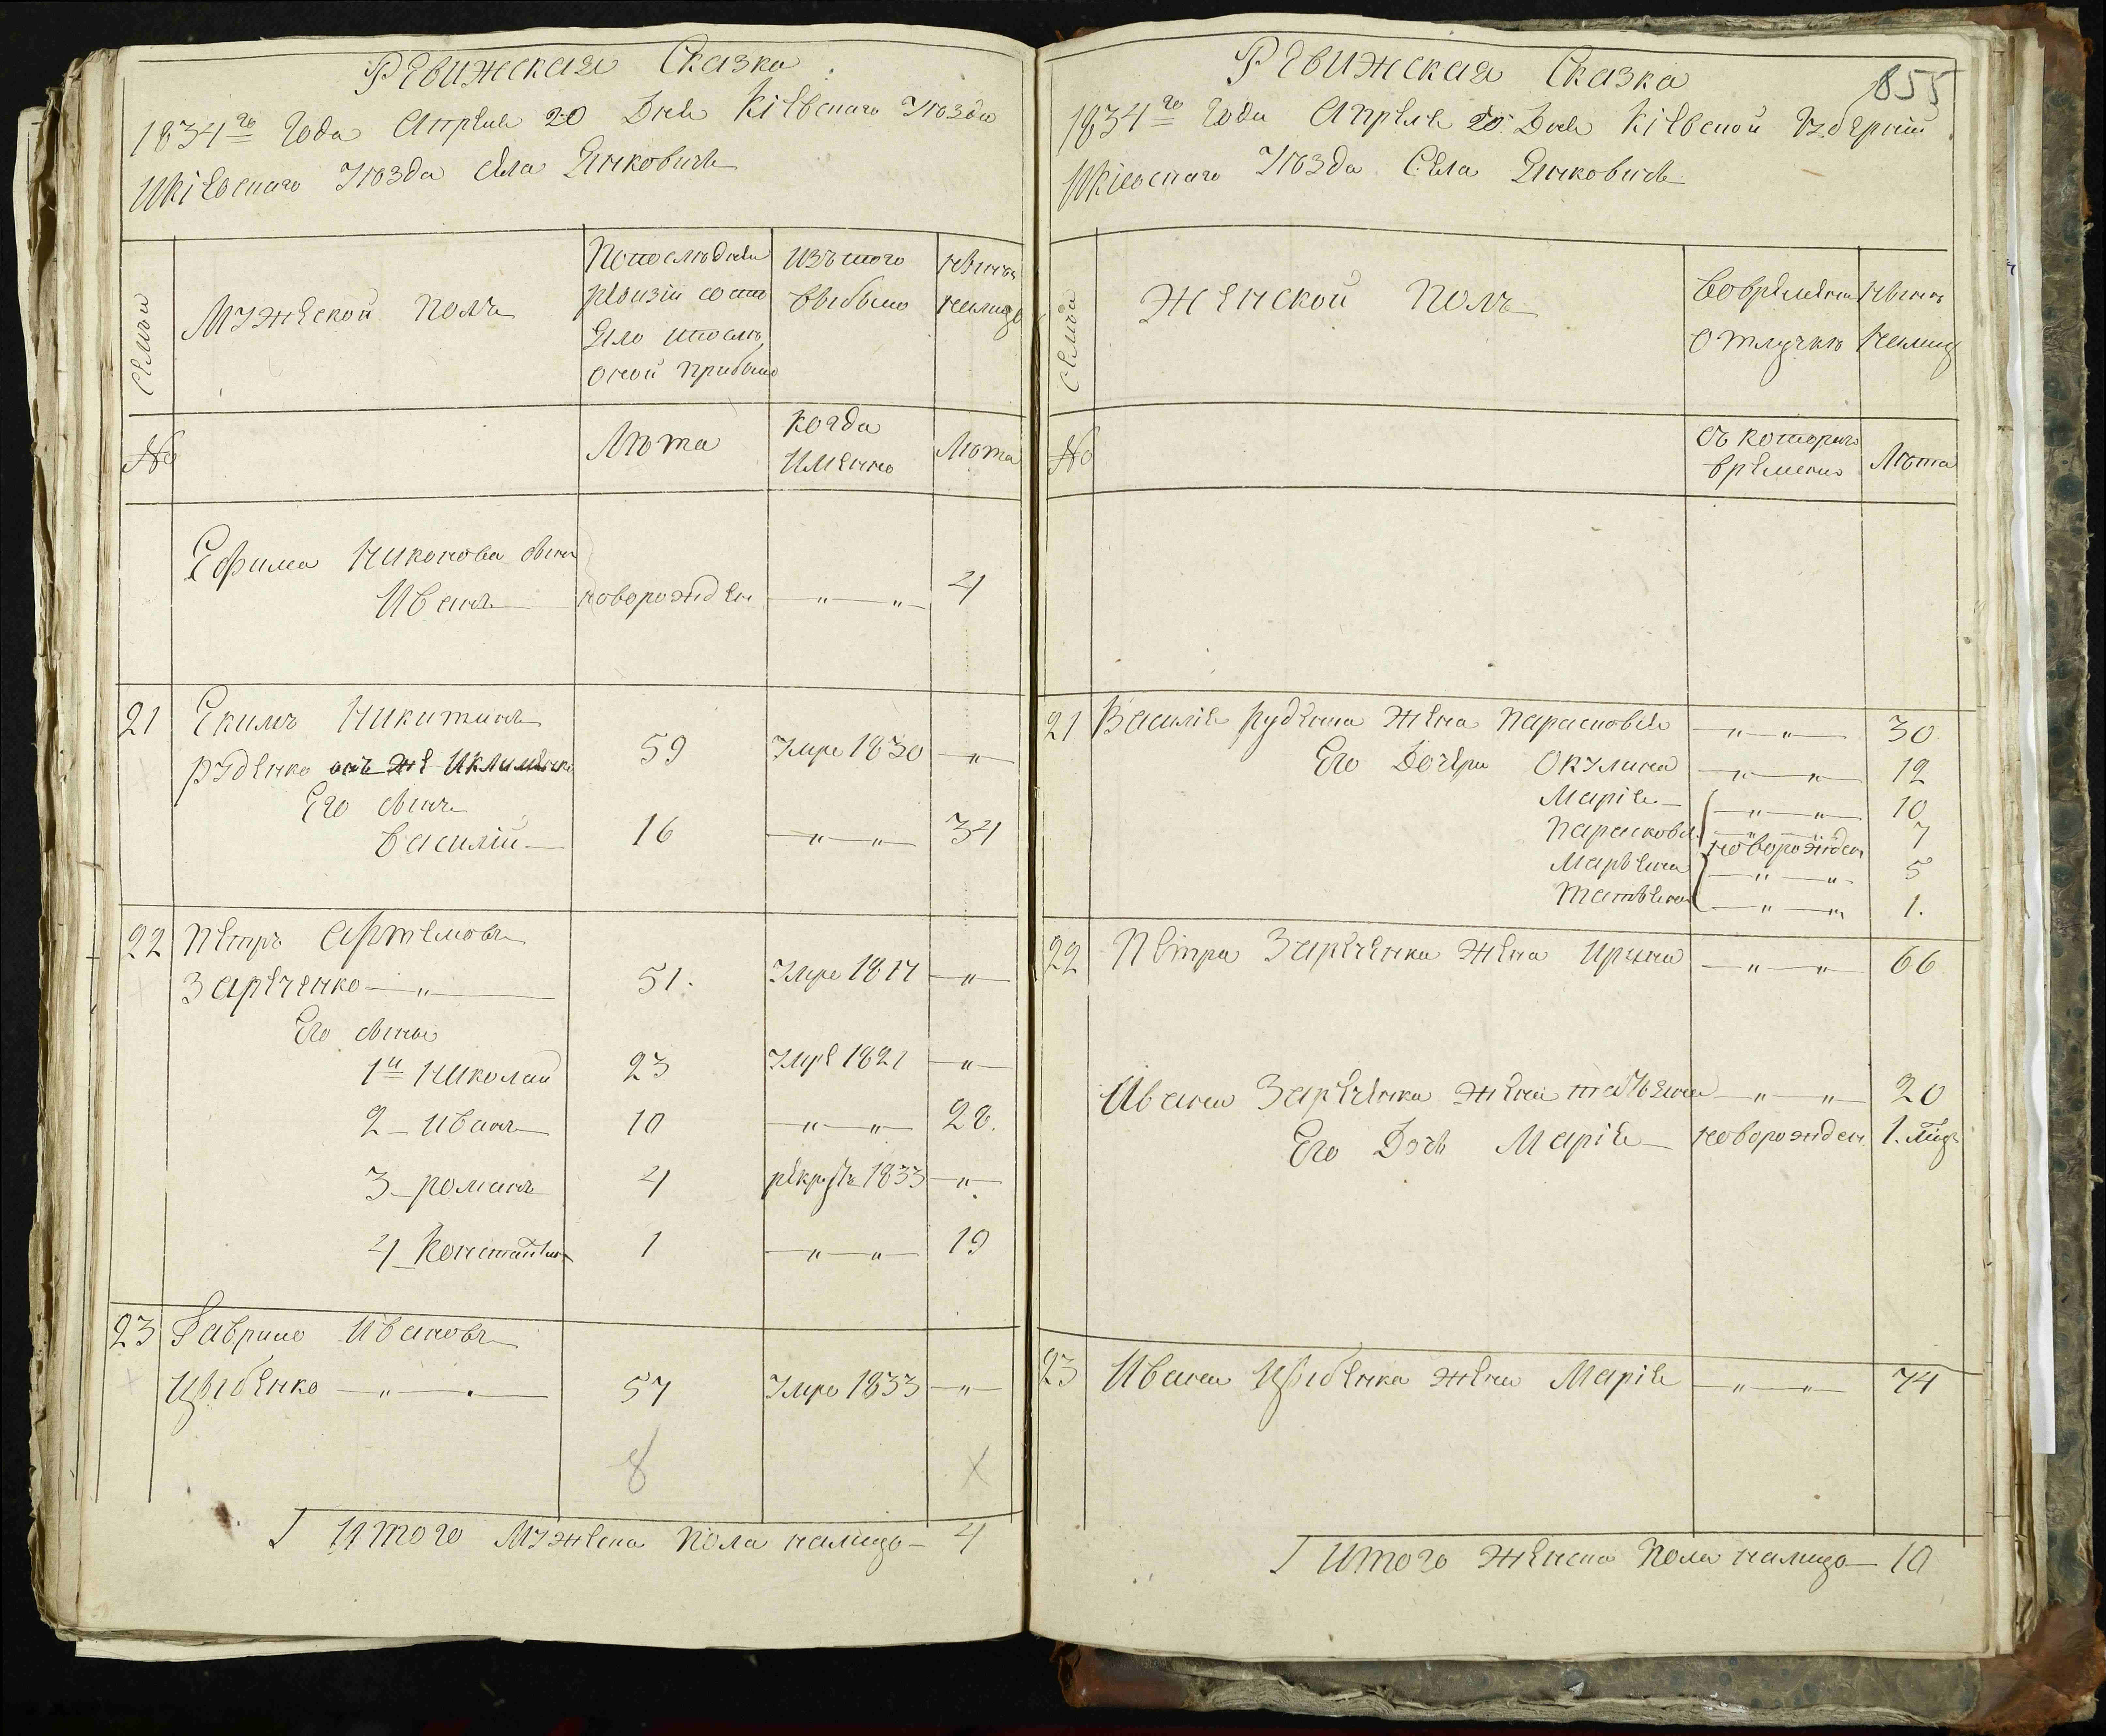 Ревижская Сказка
1834го Года Апреля 20 Дня Кіевскаго Уѣзда
Кіевскаго Уѣзда Села Янковичь
Семьи
Мужеской полъ
По последней
ревизіи состо
яло и послѣ
оной прибыло
Изъ того
выбыло
ныни
налицо
№
Лѣта
Когда
Именно
Лѣта
Ефима Никонова сынъ
Иванъ новорожден 4
21 Екимъ Никитинъ
Руденко онъ же Иклименко 59 Умре 1830
Его сынъ
Василій 16 34
22 Петръ Артемовъ
Зареченко 51. Умре 1817
Его сыны
1й Николай 23 Умре 1821
2 Иванъ 10 28.
3 Романъ 4 рекрутъ 1833
4 Константин 1 19
23 Гаврило Ивановъ
Цыбенко 57 Умре 1833
8
Итого мужеска пола налицо 4
Ревижская Сказка
855
1834го Года Апреля 20 Дня Кіевской Губерніи
Кіевскаго Уѣзда Села Янковичь
Семья
Женской полъ
Во временной
отлучкѣ
ныне
налицо
№
Съ которого
времени
Лѣта
21 Василія Руденка жена Парасковея 30
Его Дочери Окулина 12
Марія 10
Парасковея 7
новорожден
Марьяна 5
Татьяна 1.
22 Петра Зареченка жена Ирина 66
Ивана Зареченка жена Татьяна 20
Его Дочь Марія новорожден 1. мѣся
23 Ивана Цыбенка жена Марія 74
Итого женска пола налицо 10